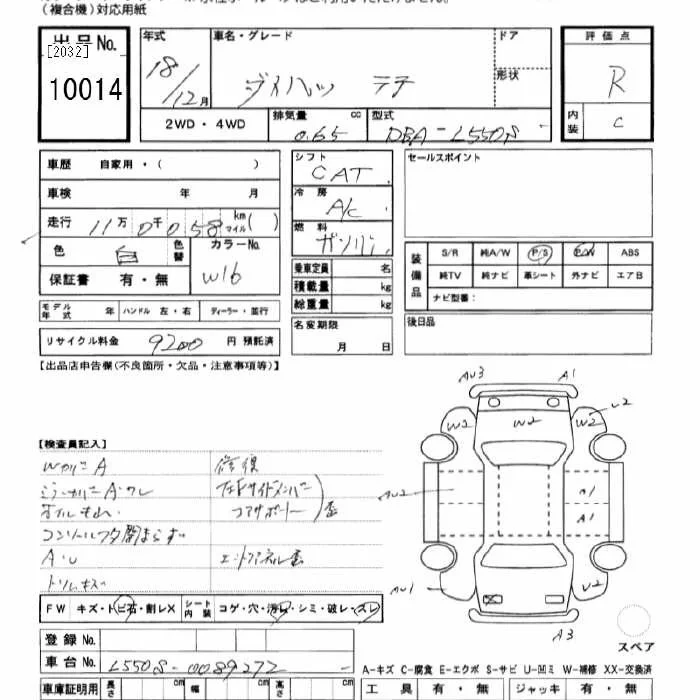 (複合機)対応用紙
出品No.
[2032]
10014
年式 車名・グレード ドア
18/12月 ダイハツ テラ 形状
2WD・4WD 排気量 cc 型式
0.65 DBA-L550S
評価点
R
内装 C
車歴 自家用・( )
車検 年 月
走行 11万0千058 km マイル( )
色 白 色替 カラーNo.
W16
保証書 有・無
モデル年式 年 ハンドル 左・右 ディーラー・並行
リサイクル料金 9200 円 預託済
シフト
CAT
冷房
A/C
燃料
ガソリン
乗車定員 名
積載量 kg
総重量 kg
名変期限
月 日
セールスポイント
装備品 S/R 純A/W P/S P/W ABS
純TV 純ナビ 革シート 外ナビ エアB
ナビ型番:
後日品
【出品店申告欄(不良箇所・欠品・注意事項等)】
【検査員記入】
修復
コアサポート 歪
コンソールフタ閉まらず
A・U
トリムキズ
FW キズ・トビ石・割レX シート内装 コゲ・穴・汚レ・シミ・破レ・スレ
登録No.
車台No. L550S-0089272
車庫証明用 長さ cm 幅 cm 高さ cm
AU3 A1
W2 W2 W2 U2
AU2 A1
A1
AU1 U2
A3
スペア
A-キズ C-腐食 E-エクボ S-サビ U-凹ミ W-補修 XX-交換済
工具 有・無 ジャッキ 有・無